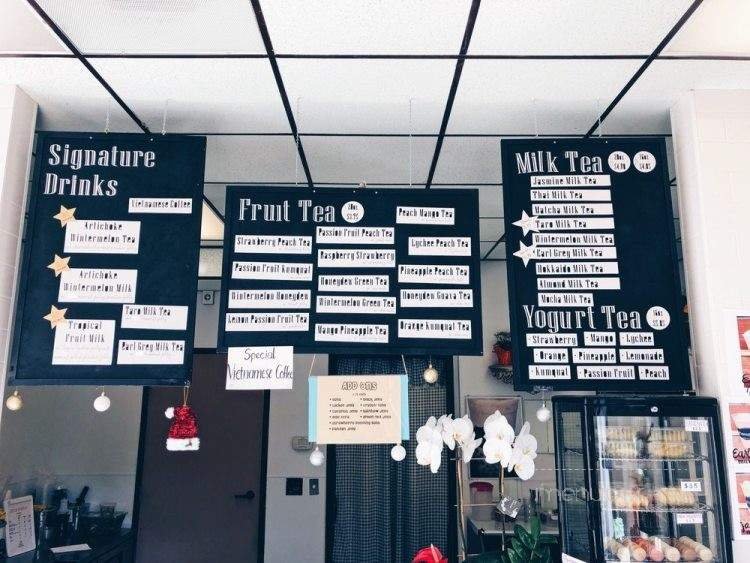 Signature
Drinks
Vietnamese Coffee
Artichoke
Wintermelon Tea
Artichoke
Wintermelon Milk
Taro Milk Tea
Tropical
Fruit Milk
Earl Grey Milk Tea
Fruit Tea
Peach Mango Tea
Passion Fruit Peach Tea
Strawberry Peach Tea
Lychee Peach Tea
Raspberry Strawberry
Passion Fruit Kumquat
Pineapple Peach Tea
Honeydew Green Tea
Winter Honeydew
Honeydew Guava Tea
Wintermelon Green Tea
Lemon Passion Fruit
Orange Kumquat Tea
Mango Pineapple Tea
Special
Vietnamese Coffee
ADD ONS
Milk Tea
Jasmine Milk Tea
Thai Milk Tea
Matcha Milk Tea
Taro Milk Tea
Wintermelon Milk Tea
Earl Grey Milk Tea
Hokkaido Milk Tea
Almond Milk Tea
Mocha Milk Tea
Yogurt Tea
· Strawberry · Mango · Lychee
· Orange · Pineapple · Lemonade
· Kumquat · Passion Fruit · Peach